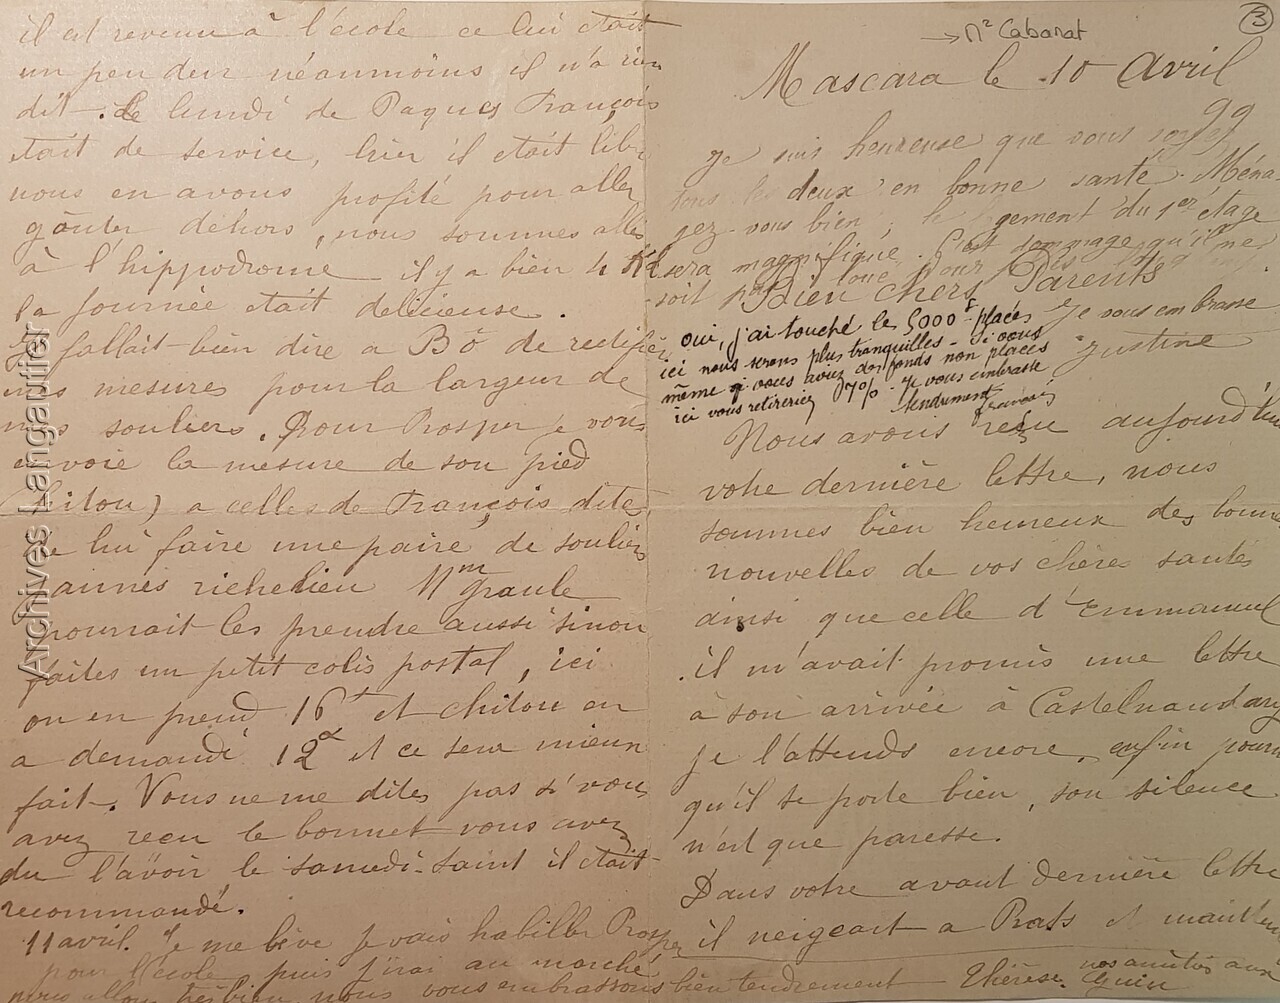 3
→ Mᵉ Cabanat
Mascara le 10 Avril
99
Je suis heureuse que vous soyez
tous les deux en bonne santé. Ména-
gez-vous bien, le logement du 1er étage
sera magnifique. C'est dommage qu'il ne
soit pas loué pour
Bien chers Parents
Je vous embrasse
Justine
oui, j'ai touché les 5000f placés
ici nous serons plus tranquilles - Si vous
même si vous avez des fonds non placés
ici vous retireriez 7%. Je vous embrasse
tendrement
François
Nous avons reçu aujourd'hui
votre dernière lettre, nous
sommes bien heureux des bonnes
nouvelles de vos chères santés
ainsi que celle d'Emmanuel
il m'avait promis une lettre
à son arrivée à Castelnaudary
je l'attends encore, enfin pourvu
qu'il se porte bien, son silence
n'est que paresse.
Dans votre avant dernière lettre
il neigeait a Prats et maintenant
il est revenu à l'école ce lui était
un peu dur néanmoins il n'a rien
dit. Le lundi de Paques François
était de service, hier il était libre
nous en avons profité pour aller
goûter dehors, nous sommes allés
à l'hippodrome il y a bien 4 Kil
la journée était délicieuse.
Il fallait bien dire a Bô de rectifier
mes mesures pour la largeur de
mes souliers. Pour Prosper je vous
envoie la mesure de son pied
(Chitou) a celles de François dites
de lui faire une paire de souliers
jaunes richelieu Mme Graule
pourrait les prendre aussi sinon
faites un petit colis postal, ici
on en prend 16f et Chitou en
a demandé 12f et ce sera mieux
fait. Vous ne me dites pas si vous
avez reçu le bonnet vous avez
du l'avoir le samedi-saint il était
recommandé.
11 avril. Je me lève je vais habiller Prosper
pour l'école puis j'irai au marché
nous allons très bien nous vous embrassons bien tendrement Thérèse
nos amitiés aux
Guin
Archives Langautier